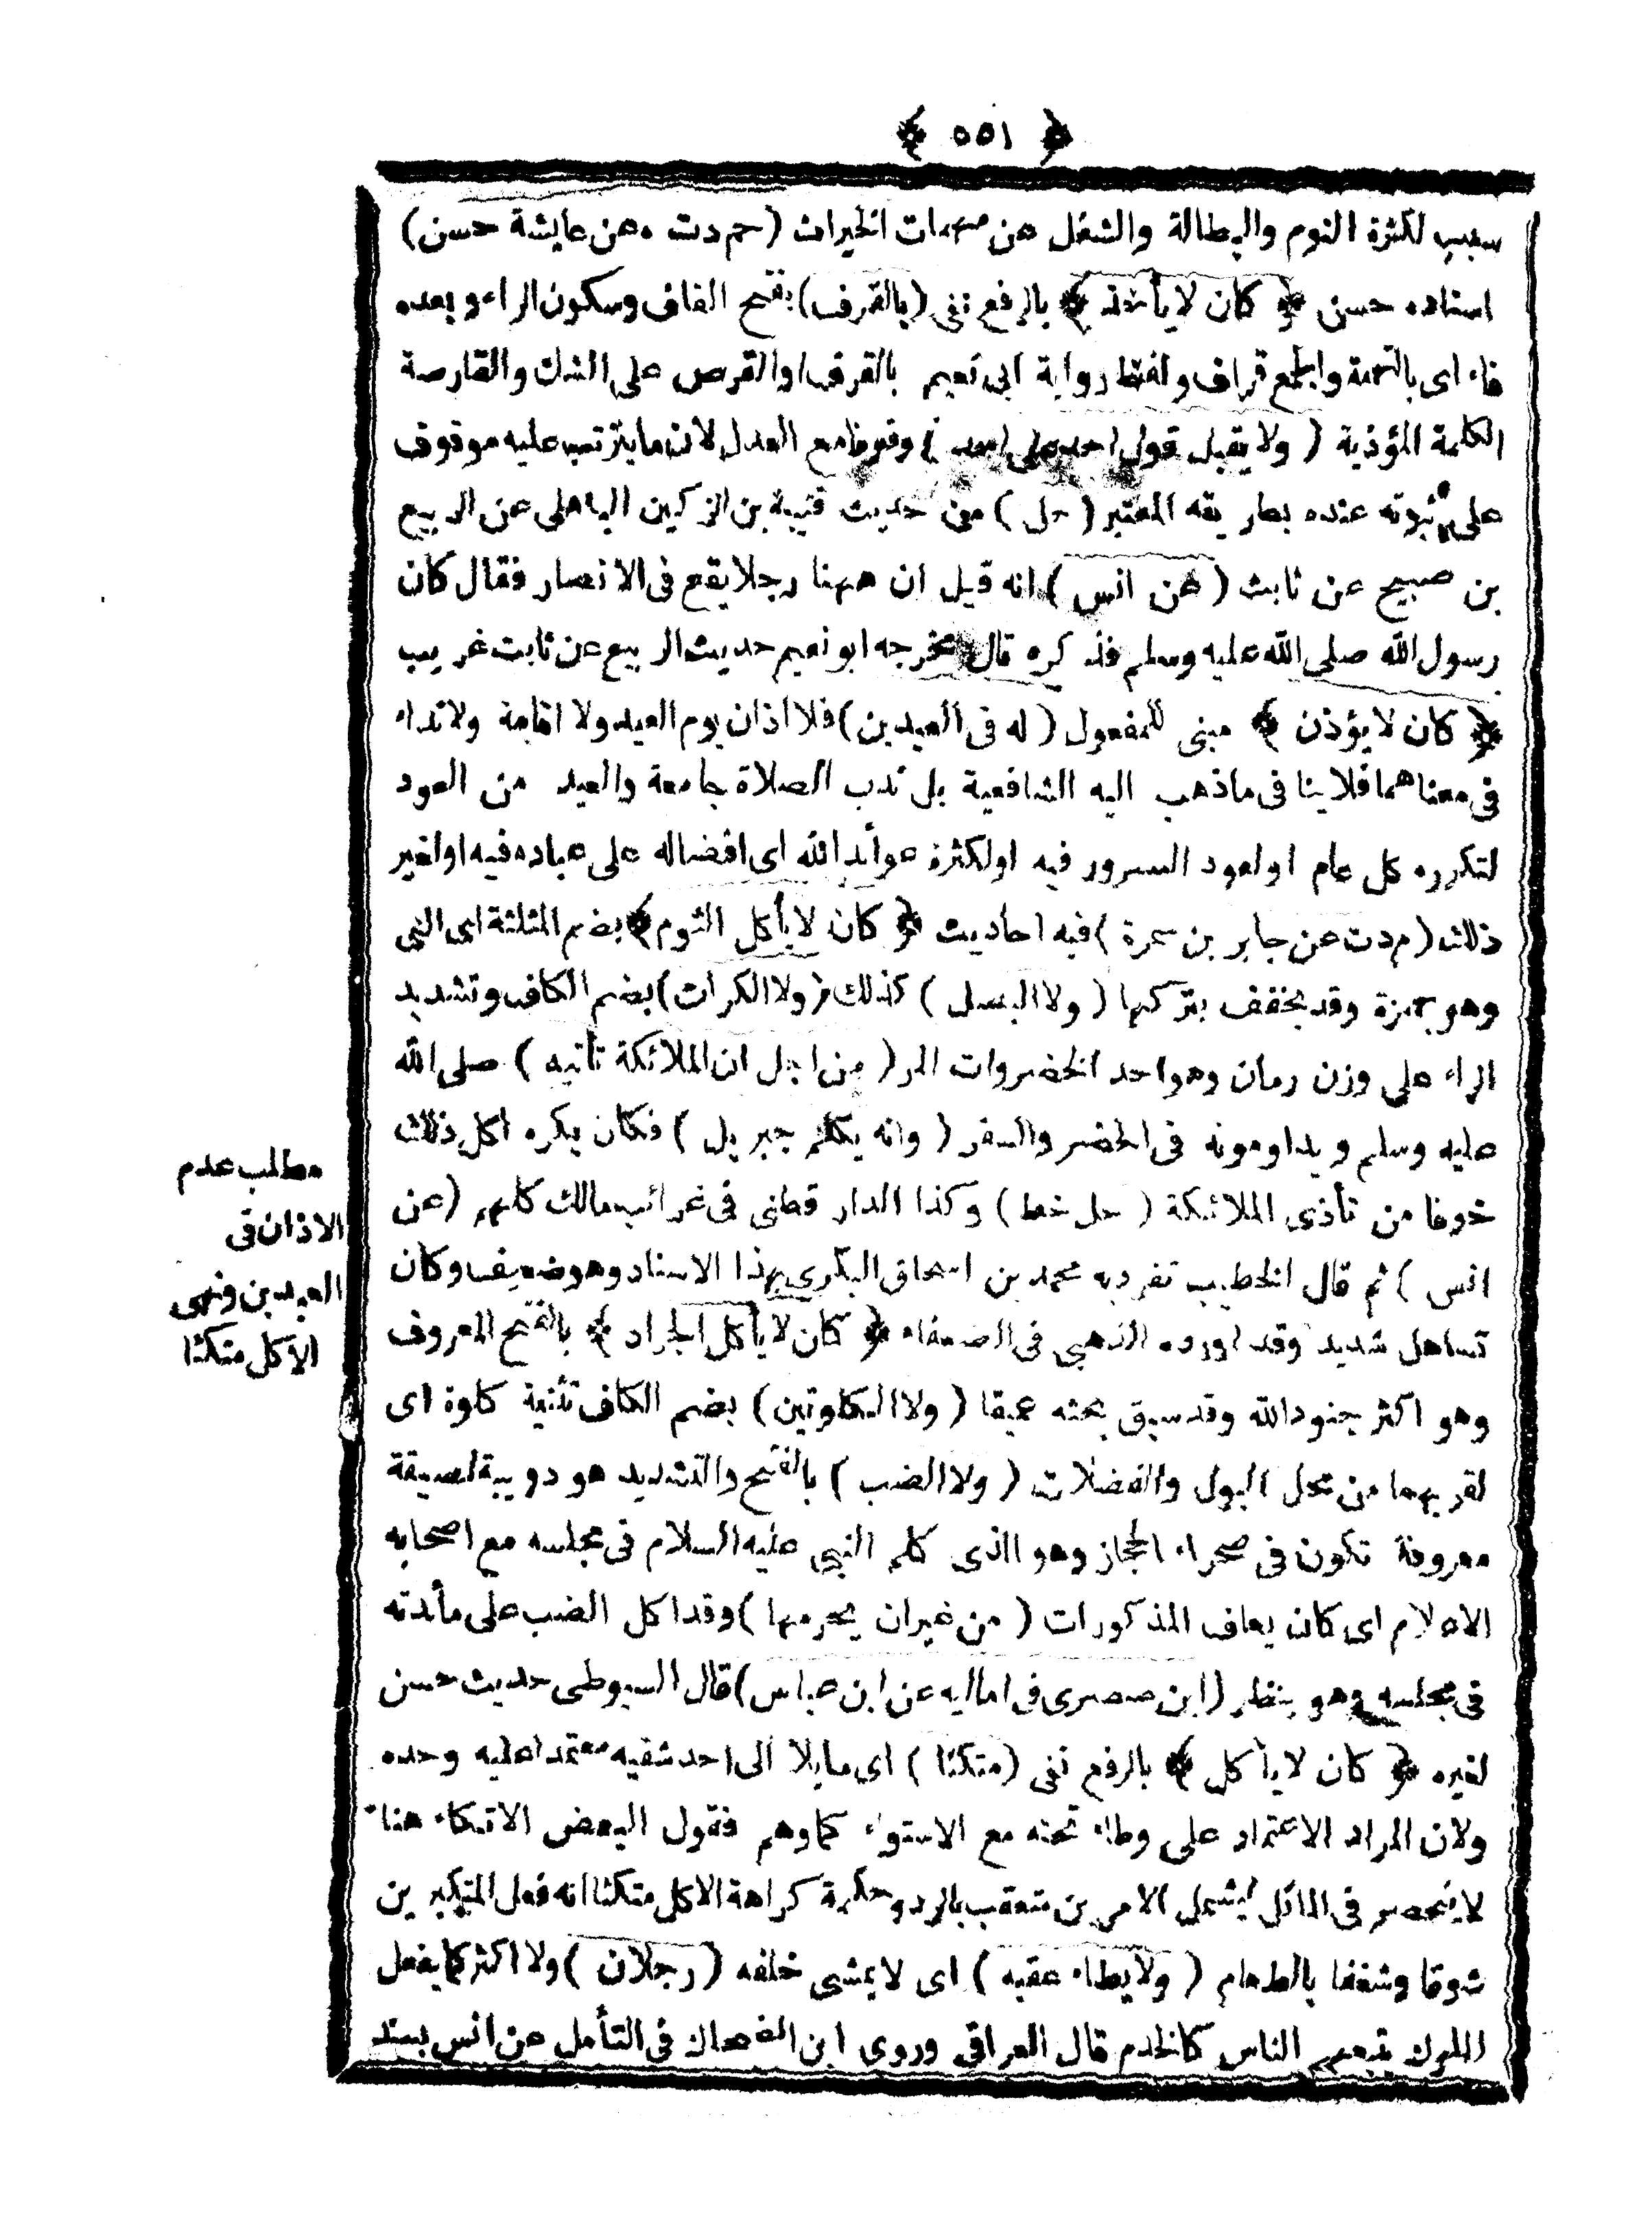 ﴿ ٥٥١ ﴾
سبب لكثرة النوم والبطالة والشغل عن مهمات الخيرات (حم دت ه عن عايشة حسن)
اسناده حسن ﴿ كان لا يأخذ ﴾ بالرفع نفى (بالقرف) بفتح القاف وسكون الراء وبعده
فاء اى بالتهمة والجمع قراف ولفظ رواية ابى نعيم بالقرف او القرص على الشك والقارصة
الكلمة المؤذية ( ولا يقبل قول احد على احد ) وقوفا مع العدل لان ما يترتب عليه موقوف
على ثبوته عنده بطريقه المعتبر ( حل ) من حديث قتيبة بن الزكين الباهلى عن الربيع
بن صبيح عن ثابت ( عن انس ) انه قيل ان ههنا رجلا يقع فى الانصار فقال كان
رسول الله صلى الله عليه وسلم فذكره قال مخرجه ابو نعيم حديث الربيع عن ثابت غريب
﴿ كان لا يؤذن ﴾ مبنى للمفعول ( له فى العيدين ) فلا اذان يوم العيد ولا اقامة ولا نداء
فى معناهما فلا ينا فى ما ذهب اليه الشافعية بل ندب الصلاة جامعة والعيد من العود
لتكرره كل عام او لعود السرور فيه او لكثرة عوائد الله اى افضاله على عباده فيه او لغير
ذلك ( م دت عن جابر بن سمرة ) فيه احاديث ﴿ كان لا يأكل الثوم ﴾ بضم المثلثة اى النى
وهو بهمزة وقد يخفف بتركها ( ولا البصل ) كذلك ( ولا الكراث ) بضم الكاف وتشديد
الراء على وزن رمان وهو احد الخضروات المر ( من اجل ان الملائكة تأتيه ) صلى الله
عليه وسلم ويداومونه فى الحضر والسفر ( وانه يكلم جبريل ) فكان يكره اكل ذلك
خوفا من تأذى الملائكة ( حل خط ) وكذا الدار قطنى فى غرائب مالك كلهم (عن
انس ) ثم قال الخطيب تفرد به محمد بن اسحاق البكرى بهذا الاسناد وهو ضعيف وكان
تساهل شديد وقد اورده الذهبى فى الضعفاء ﴿ كان لا يأكل الجراد ﴾ بالفتح المعروف
وهو اكثر جنود الله وقد سبق بحثه عميقا ( ولا الكلوتين ) بضم الكاف تثنية كلوة اى
لقربهما من محل البول والفضلات ( ولا الضب ) بالفتح والتشديد هو دويبة لصيقة
معروفة تكون فى صحراء الحجاز وهو الذى كلم النبى عليه السلام فى مجلسه مع اصحابه
الاعلام اى كان يعاف المذكورات ( من غير ان يحرمها ) وقد اكل الضب على مأدته
فى مجلسه وهو ينظر (ابن صصرى فى اماليه عن ابن عباس) قال السيوطى حديث حسن
لغيره ﴿ كان لا يأكل ﴾ بالرفع نفى (متكئا ) اى مايلا الى احد شقيه معتمدا عليه وحده
ولان المراد الاعتماد على وطاء تحته مع الاستواء كما وهم فقول البعض الاتكاء هنا
لا ينحصر فى المائل ليشمل الامرين متعقب بالرد وحكمة كراهة الاكل متكئا انه فعل المتكبرين
شوقا وشغفا بالطعام ( ولا يطاء عقبه ) اى لا يمشى خلفه ( رجلان ) ولا اكثر كما يفعل
الملوك يتبعهم الناس كالخدم قال العراقى وروى ابن الضحاك فى التأمل عن انس بسند
مطلب عدم
الاذان فى
العيدين ونهى
الاكل متكئا